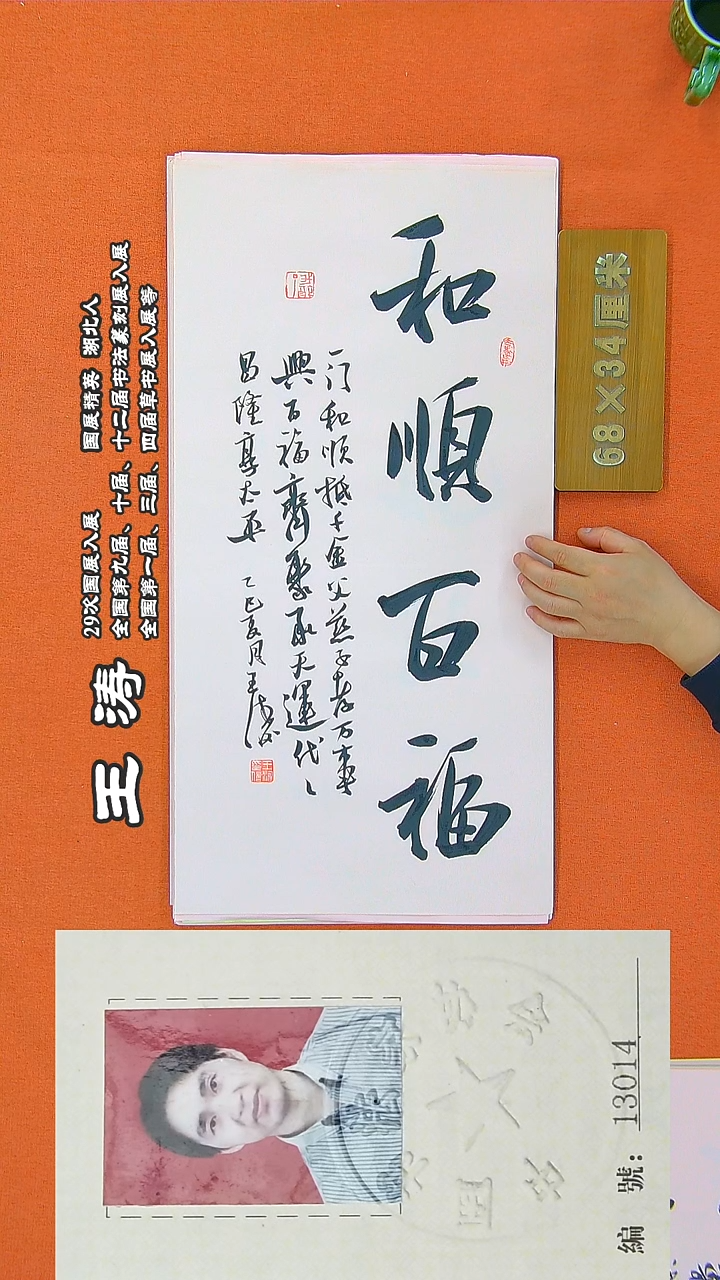 和順百福
一门和顺抵千金父慈子孝万事
興百福齊聚承天運代々
昌隆享太平 乙巳夏月王涛
68×34厘米
王涛
29次国展入展 国展精英 湖北人
全国第九届、十届、十二届书法篆刻展入展
全国第一届、三届、四届草书展入展等
編 號：13014